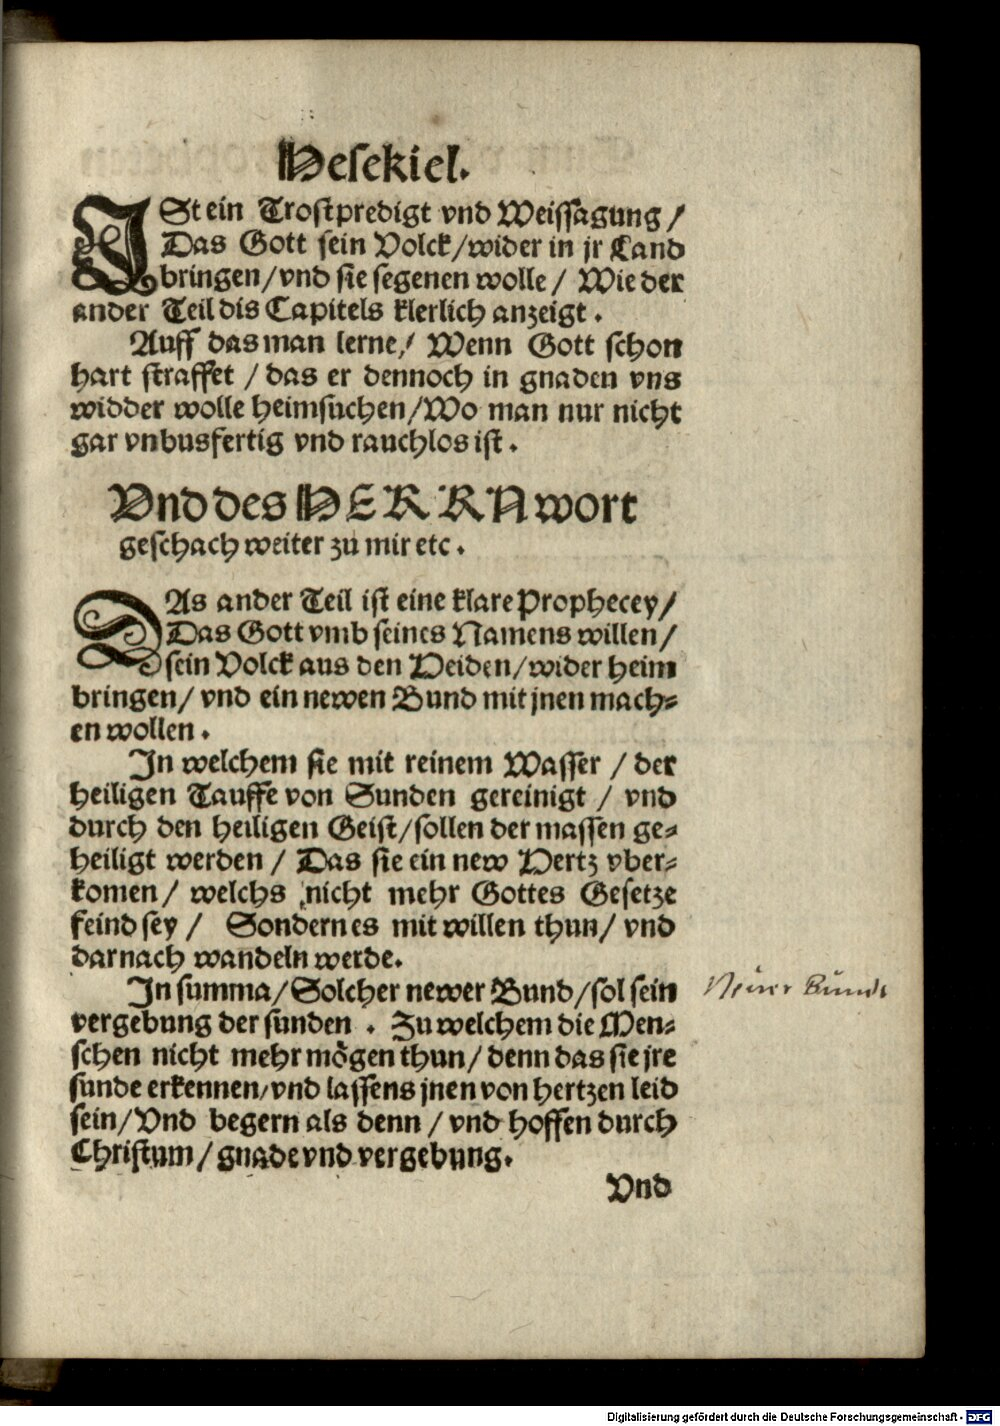 Hesekiel.
ISt ein Trostpredigt vnd Weissagung /
Das Gott sein Volck / wider in jr Land
bringen / vnd sie segenen wolle / Wie der
ander Teil dis Capitels klerlich anzeigt .
Auff das man lerne / Wenn Gott schon
hart straffet / das er dennoch in gnaden vns
widder wolle heimsuchen / Wo man nur nicht
gar vnbusfertig vnd rauchlos ist .
Vnd des HERRN wort
geschach weiter zu mir etc .
DAs ander Teil ist eine klare Prophecey /
Das Gott vmb seines Namens willen /
sein Volck aus den Heiden / wider heim
bringen / vnd ein newen Bund mit jnen mach-
en wollen .
In welchem sie mit reinem Wasser / der
heiligen Tauffe von Sunden gereinigt / vnd
durch den heiligen Geist / sollen der massen ge-
heiligt werden / Das sie ein new Hertz vber-
komen / welchs nicht mehr Gottes Gesetze
feind sey / Sondern es mit willen thun / vnd
darnach wandeln werde.
In summa / Solcher newer Bund / sol sein
vergebung der sunden . Zu welchem die Men-
schen nicht mehr mögen thun / denn das sie jre
sunde erkennen / vnd lassens jnen von hertzen leid
sein / Vnd begern als denn / vnd hoffen durch
Christum / gnade vnd vergebung.
Vnd
Neuer Bundt
Digitalisierung gefördert durch die Deutsche Forschungsgemeinschaft - DFG